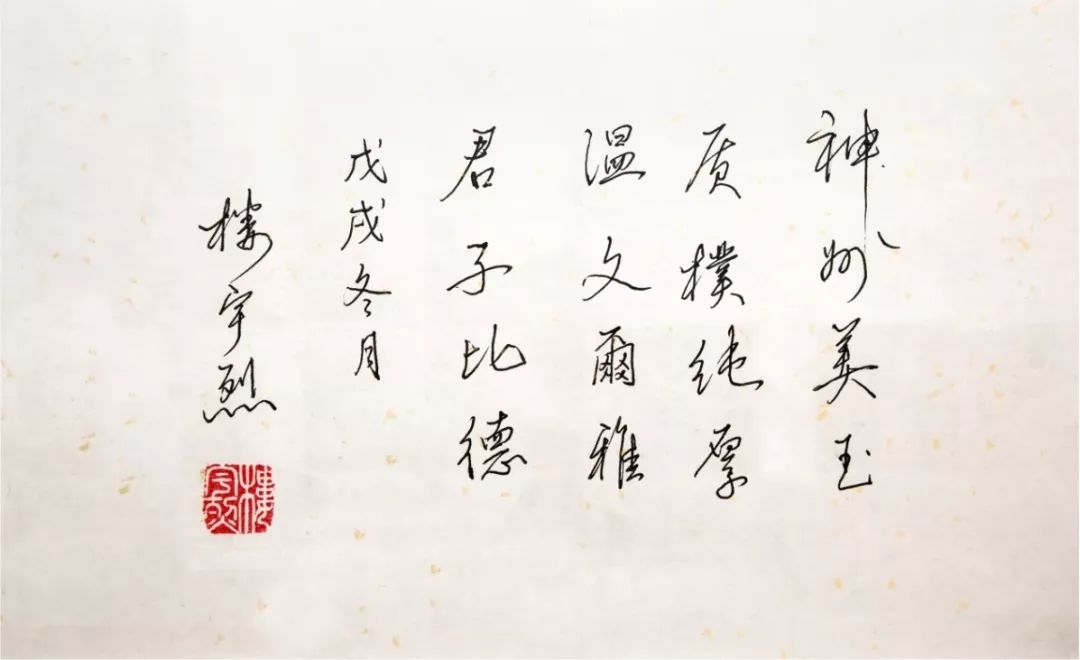 神州美玉
质樸纯厚
温文爾雅
君子比德
戊戌冬月
楼宇烈
樓宇烈